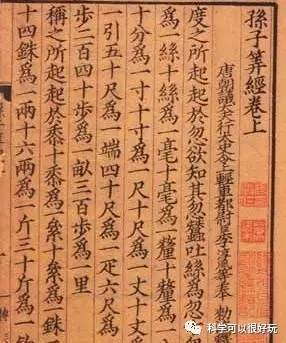 孫子筭經卷上
唐朝議大夫行太史令上輕車都尉李淳風等奉 勑
度之所起起於忽欲知其忽蠶吐絲爲忽
爲一絲十絲爲一毫十毫爲一釐十釐爲
十分爲一寸十寸爲一尺十尺爲一丈十丈
一引五十尺爲一端四十尺爲一疋六尺
步二百四十步爲一畝三百步爲一里
稱之所起起於黍十黍爲一絫十絫爲一銖
十四銖爲一兩十六兩爲一斤三十斤爲一
科学可以很好玩